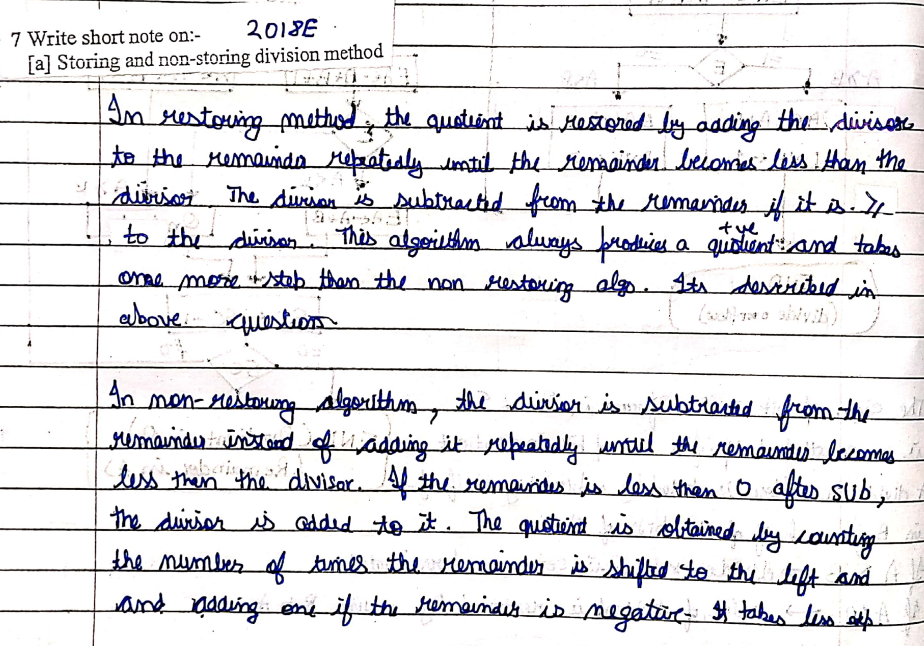 7 Write short note on:- 2018E
[a] Storing and non-storing division method
In restoring method, the quotient is restored by adding the divisor
to the remainda repeatedly until the remainder becomes less than the
divisor. The divisor is subtracted from the remainder if it is ≥
to the divisor. This algorithm always produces a +ve quotient and takes
one more step than the non restoring algo. Its described in
above question
In non-restoring algorithm, the divisor is subtracted from the
remainder instead of adding it repeatedly until the remainder becomes
less than the divisor. If the remainder is less than 0 after sub,
the divisor is added to it. The quotient is obtained by counting
the number of times the remainder is shifted to the left and
and adding one if the remainder is negative. It takes less step.